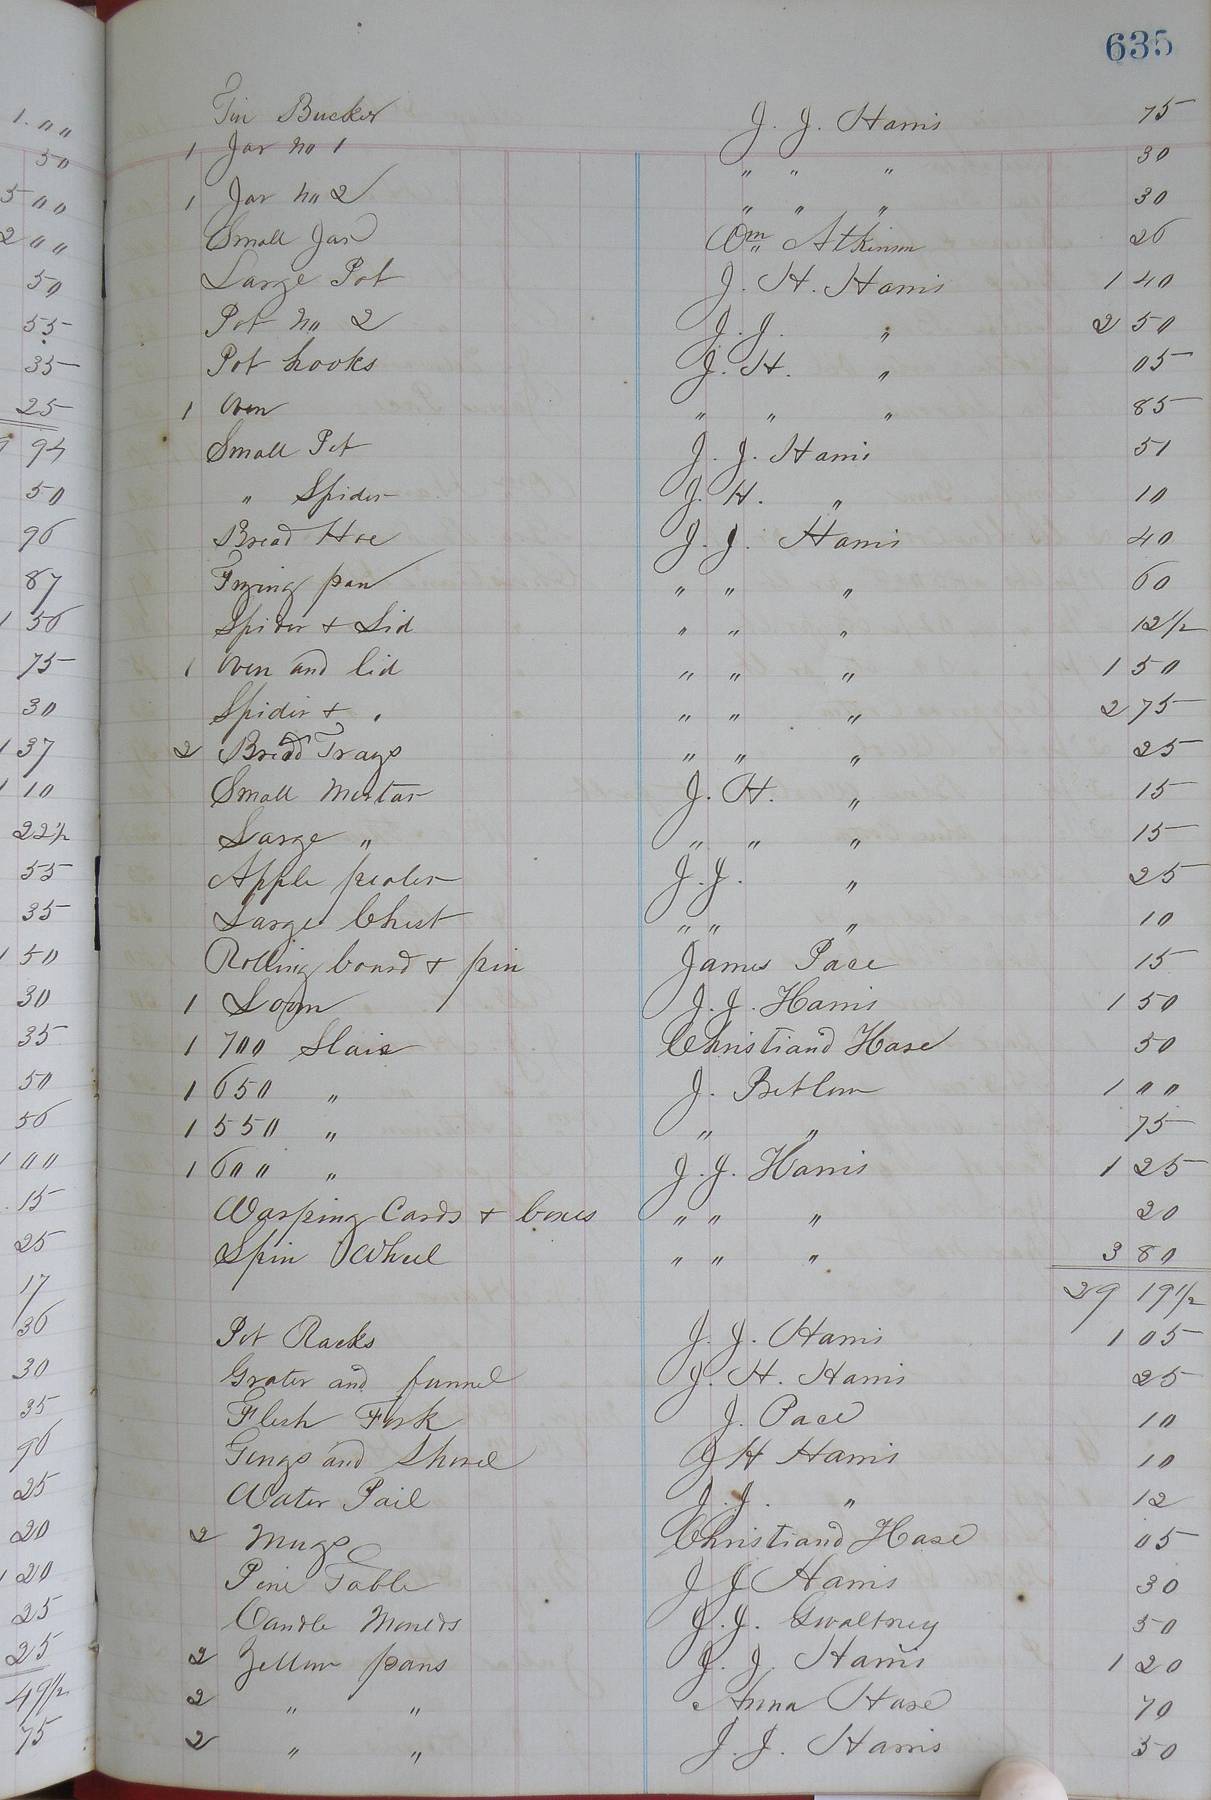 635
Tin Bucket J. J. Harris 75
1 Jar No 1 " " " 30
1 Jar No 2 " " " 30
Small Jar Wm Atkinson 26
Large Pot J. H. Harris 1 40
Pot No 2 J. J. " 2 50
Pot hooks J. H. " 05
1 Oven " " " 85
Small Pot J. J. Harris 51
" Spider J. H. " 10
Bread Hoe J. J. Harris 40
Frying pan " " " 60
Spider + Lid " " " 12 1/2
1 Oven and lid " " " 1 50
Spider + " " " " 2 75
2 Bread Trays " " " 25
Small Mortar J. H. " 15
Large " " " " 15
Apple pealer J. J. " 25
Large Chest " " " 10
Rolling board + pin James Pace 15
1 Loom J. J. Harris 1 50
1 700 Slaie Christiand Hase 50
1 650 " J. 1 00
1 550 " " " 75
1 600 " J. J. Harris 1 25
Warping Cards + boxes " " " 20
Spin Wheel " " " 3 80
29 19 1/2
Pot Racks J. J. Harris 1 05
Grater and funnel J. H. Harris 25
Flesh Fork J. Pace 10
Tongs and Shovel J H Harris 10
Water Pail J. J. " 12
2 Mugs Christiand Hase 05
Pine Table J J Harris 30
Candle Moulds J. J. Gwaltney 50
2 Yellow pans J. J. Harris 1 20
2 " " Anna Hase 70
2 " " J. J. Harris 50
1.00
50
5 00
2 00
50
55
35
25
94
50
96
87
1 56
75
30
1 37
1 10
22 1/2
55
35
1 50
30
35
50
56
1 00
15
25
17
36
30
35
96
25
20
1 20
25
25
49 1/2
75